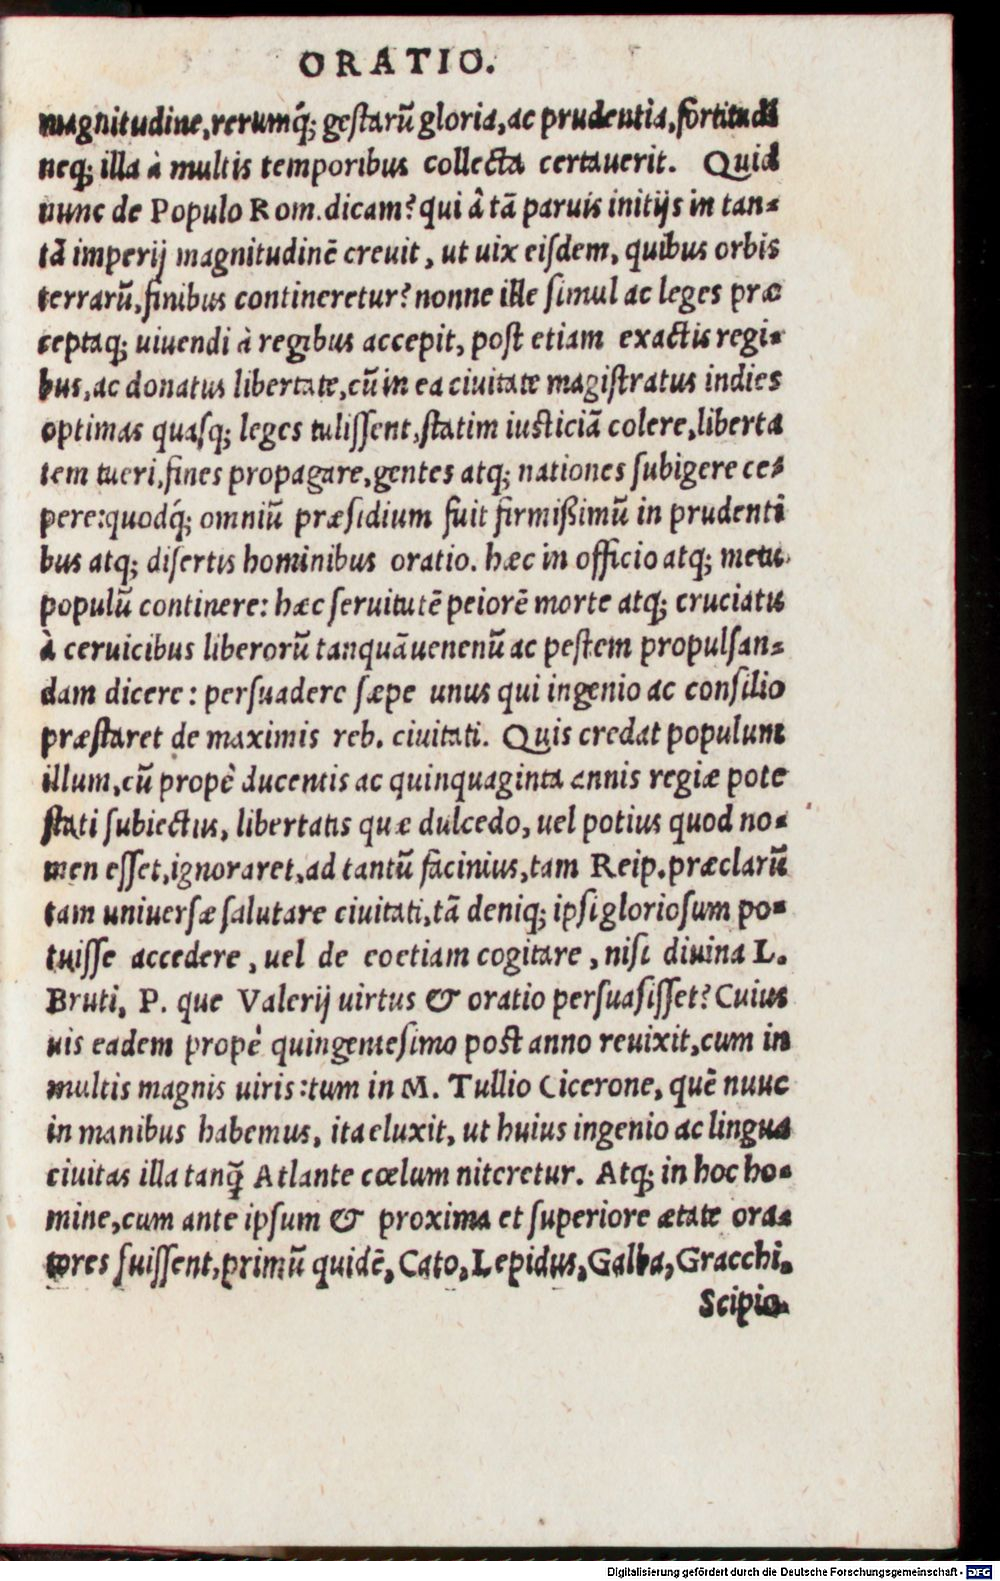 ORATIO.
magnitudine, rerumq́; gestarū gloria, ac prudentia, fortitudi
neq; illa à multis temporibus collecta certauerit. Quid
nunc de Populo Rom. dicam? qui â tā paruis initijs in tan-
tā imperij magnitudinē creuit, ut uix eisdem, quibus orbis
terrarū, finibus contineretur? nonne ille simul ac leges præ
ceptaq; uiuendi à regibus accepit, post etiam exactis regi-
bus, ac donatus libertate, cū in ea ciuitate magistratus indies
optimas quasq; leges tulissent, statim iusticiā colere, liberta
tem tueri, fines propagare, gentes atq; nationes subigere ce-
pere: quodq́; omniū præsidium fuit firmißimū in prudenti
bus atq; disertis hominibus oratio. hæc in officio atq; metu
populū continere: hæc seruitutē peiorē morte atq; cruciatu
à ceruicibus liberorū tanquā uenenū ac pestem propulsan-
dam dicere: persuadere sæpe unus qui ingenio ac consilio
præstaret de maximis reb. ciuitati. Quis credat populum
illum, cū propè ducentis ac quinquaginta annis regiæ pote
stati subiectus, libertatis quæ dulcedo, uel potius quod no-
men esset, ignoraret, ad tantū facinius, tam Reip. præclarū
tam uniuersæ salutare ciuitati, tā deniq; ipsi gloriosum po-
tuisse accedere, uel de eo etiam cogitare, nisi diuina L.
Bruti, P. que Valerij uirtus & oratio persuasisset? Cuius
uis eadem propè quingentesimo post anno reuixit, cum in
multis magnis uiris: tum in M. Tullio Cicerone, quē nunc
in manibus habemus, ita eluxit, ut huius ingenio ac lingua
ciuitas illa tanq̄ Atlante cœlum niteretur. Atq; in hoc ho-
mine, cum ante ipsum & proxima et superiore ætate ora-
tores fuissent, primū quidē, Cato, Lepidus, Galba, Gracchi,
Scipio
Digitalisierung gefördert durch die Deutsche Forschungsgemeinschaft - DFG